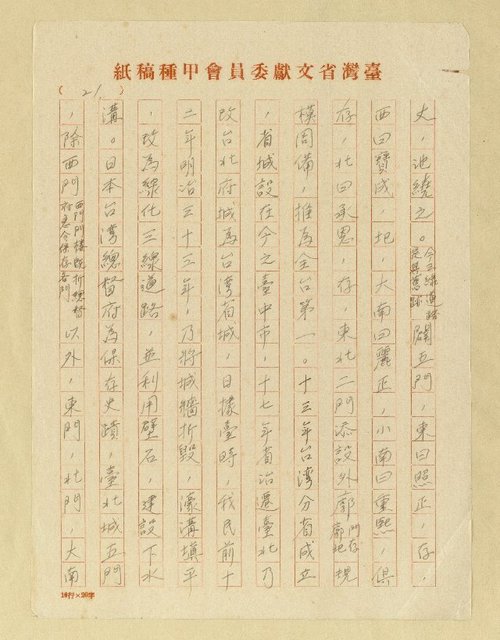 臺灣省文獻委員會甲種稿紙
(21)
丈，池繞之。今三線道路是其舊跡闢五門，東曰照正，存，
西曰寶成，圮，大南曰麗正，小南曰重熙，俱
存，北曰承恩，存，東北二門添設外廓門存廓圮規
模周備，推為全台第一。十三年台灣分省成立
，省城設在今之臺中市，十七年省治遷臺北乃
改台北府城為台灣省城，日據臺時，我民前十
二年明治三十三年，乃將城牆折毀，濠溝填平
，改為綠化三線道路，並利用壁石，建設下水
溝。日本台灣總督府為保存史蹟，臺北城五門
，除西門西門門樓既折總督府急令保存各門以外，東門，北門，大南
10行×20字